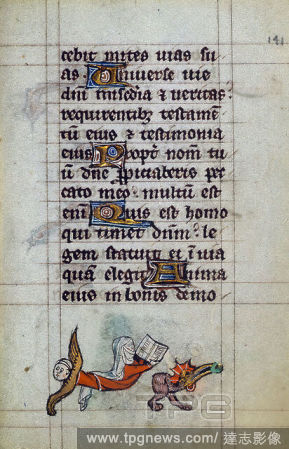 141
cebit mites uias su
as. Uniuerse uie
dñi misedia ⁊ ueritas:
requirentibz testamē
tū eius ⁊ testimonia
eius Propt̄ nom̄ tu
ū dñe ꝓpiciaberis pec
cato meo: multū est
enī Quis est homo
qui timet dūm: le
gem statuit ei ī uia
quā elegit Anima
eius in bonis demo
TPG
www.tpgnews.com/達志影像